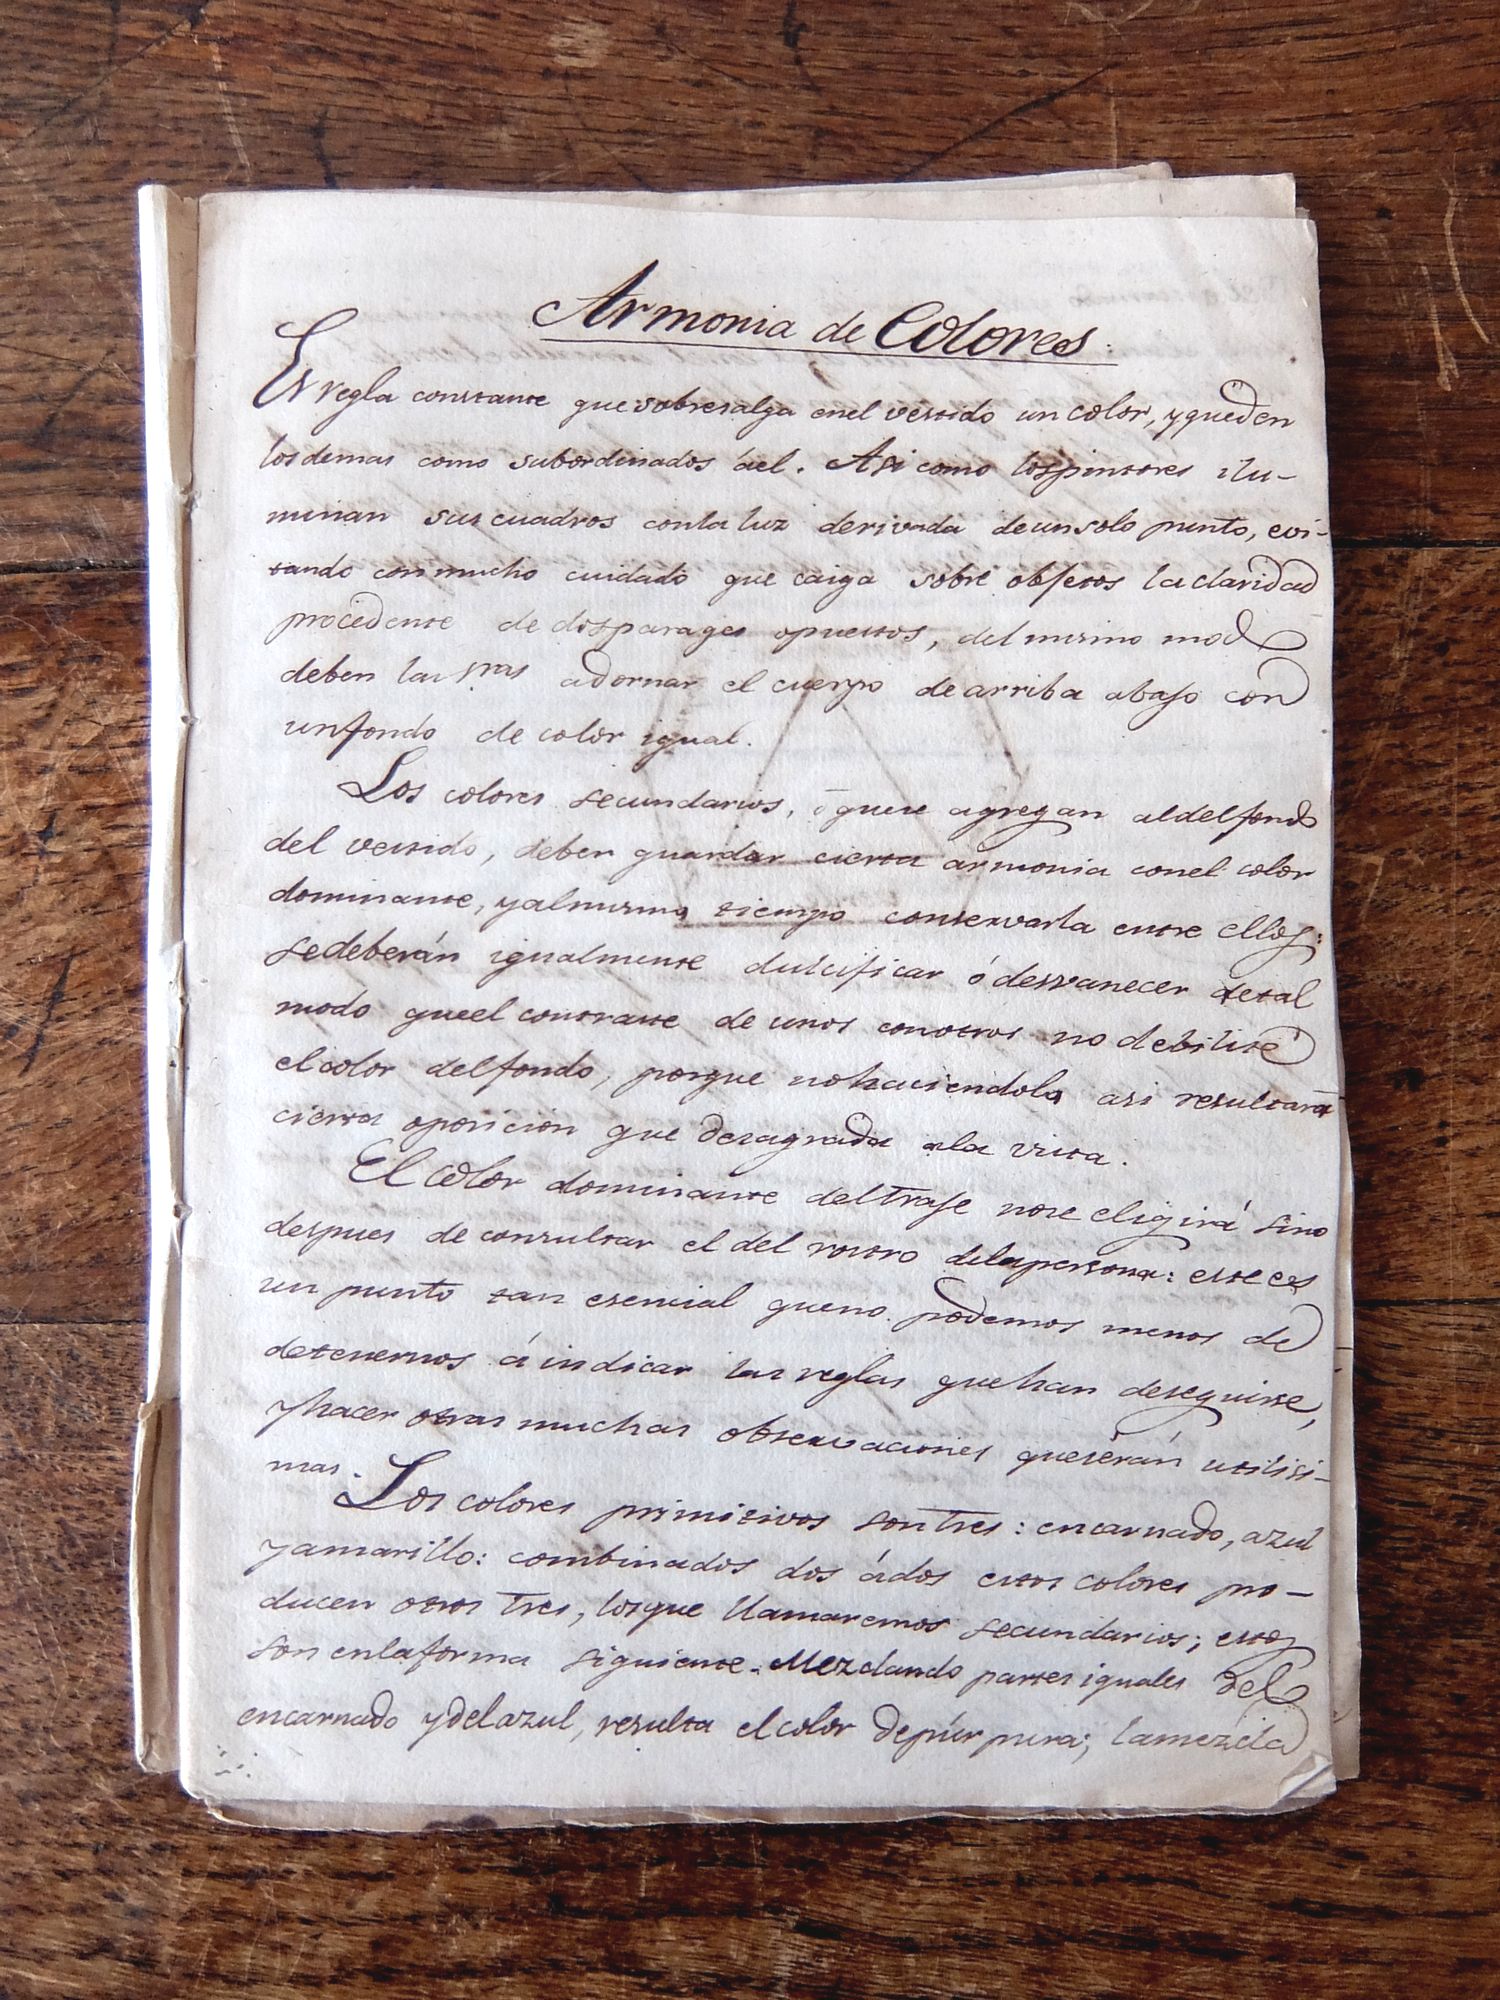 Armonia de Colores.
Es regla constante que sobresalga en el vestido un color, y queden
los demas como subordinados á el. Asi como los pintores ilu-
minan sus cuadros con la luz derivada de un solo punto, evi-
tando con mucho cuidado que caiga sobre objetos la claridad
procedente de dos parages opuestos, del mismo modo
deben las Sras adornar el cuerpo de arriba abajo con
un fondo de color igual.
Los colores secundarios, ó que se agregan al del fondo
del vestido, deben guardar cierta armonia con el color
dominante, y al mismo tiempo conservarla entre ellos:
se deberán igualmente dulcificar ó desvanecer de tal
modo que el contraste de unos con otros no debilite
el color del fondo, porque no haciendolo asi resultará
cierta oposicion que desagrada a la vista.
El color dominante del traje no se eligirá sino
despues de consultar el del rostro de la persona: este es
un punto tan esencial que no podemos menos de
detenernos á indicar las reglas que han de seguirse,
y hacer otras muchas observaciones que serán utilisi-
mas.
Los colores primitivos son tres: encarnado, azul
y amarillo: combinados dos á dos estos colores pro-
ducen otros tres, los que llamaremos secundarios; estos
son en la forma siguiente. Mezclando partes iguales del
encarnado y del azul, resulta el color de púrpura; la mezcla